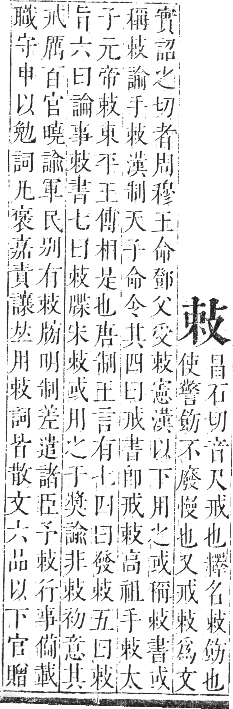 敕
昌石切音尺戒也釋名敕飭也
使警飭不廢慢也又戒敕爲文
實詔之切者周穆王命鄧父受敕憲漢以下用之或稱敕書或
稱敕諭手敕漢制天子命令其四曰戒書卽戒敕高祖手敕太
子元帝敕東平王傅相是也唐制王言有七四曰發敕五曰敕
旨六曰論事敕書七曰敕牒朱敕或用之于奬諭非敕初意其
戒厲百官曉諭軍民別有敕牓明制差遣諸臣予敕行事備載
職守申以勉詞凡褒嘉責讓並用敕詞皆散文六品以下官贈